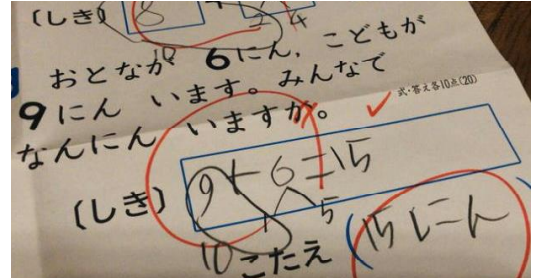 (しき) 8 2 4
10
おとなが 6にん、こどもが
9にん います。みんなで
なんにん いますか。
式・答え各10点(20)
(しき) 9+6=15
1 5
10
こたえ (15にん